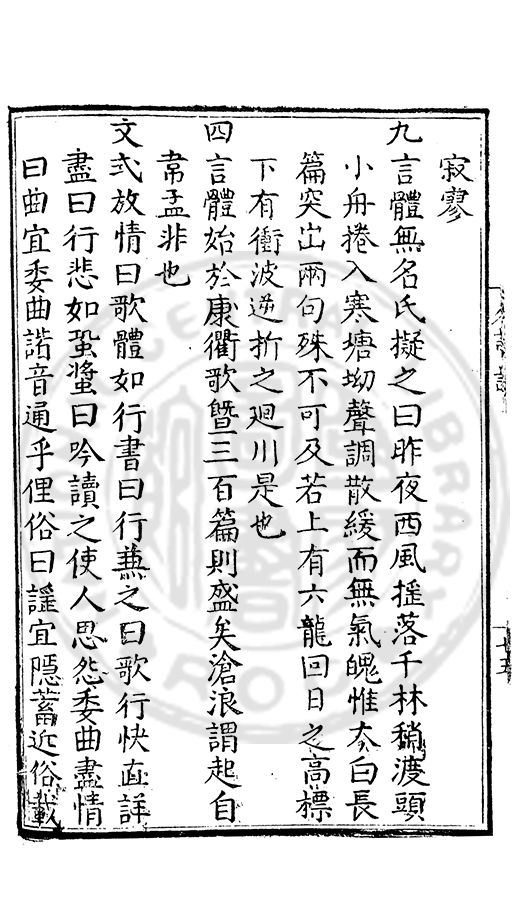 寂寥
九言體無名氏擬之曰昨夜西風揺落千林稍渡頭
小舟捲入寒塘坳聲調散緩而無氣魄惟太白長
篇突出兩句殊不可及若上有六龍回日之高標
下有衝波逆折之廻川是也
四言體始於康衢歌暨三百篇則盛矣滄浪謂起自
韋孟非也
文式放情曰歌體如行書曰行蕪之曰歌行快直詳
盡曰行悲如蛩螿曰吟讀之使人思怨委曲盡情
曰曲宜委曲諧音通乎俚俗曰謡宜隱蓄近俗載